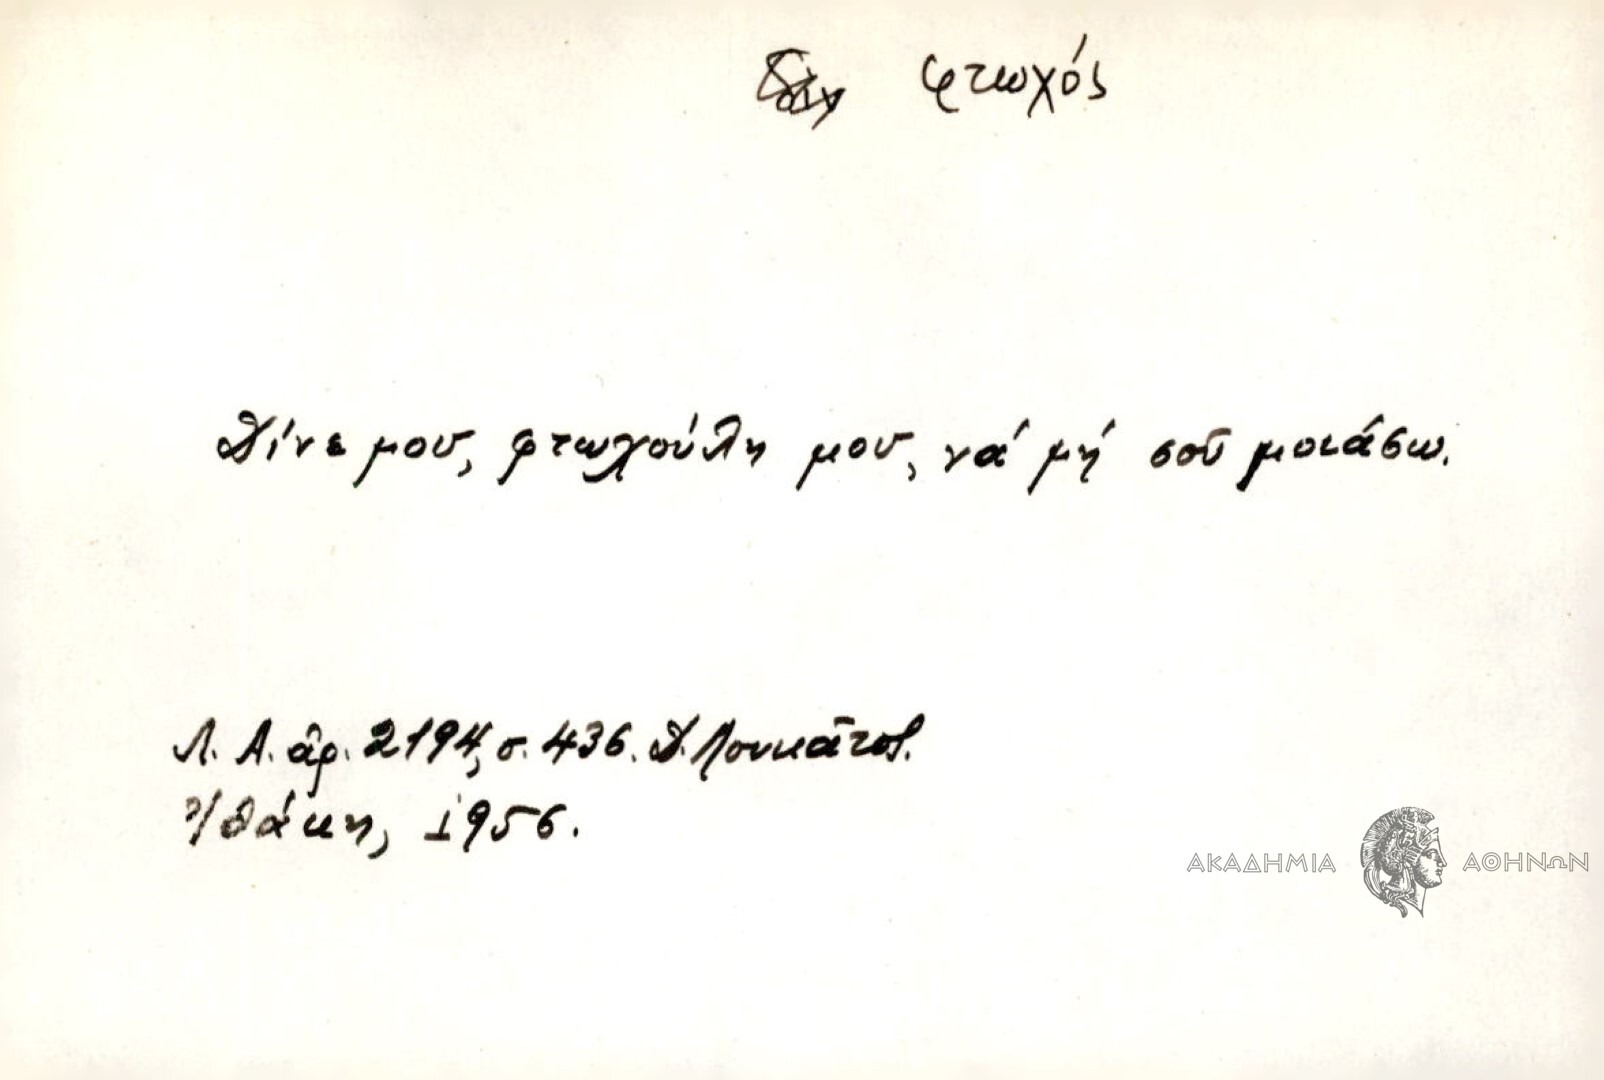 φτωχός
Δίνε μου, φτωχούλη μου, νά μή σοῦ μοιάσω.
Λ. Α. ἀρ. 2194, σ. 436. Δ. Λουκᾶτος.
Ἰθάκη, 1956.
ΑΚΑΔΗΜΙΑ ΑΘΗΝΩΝ